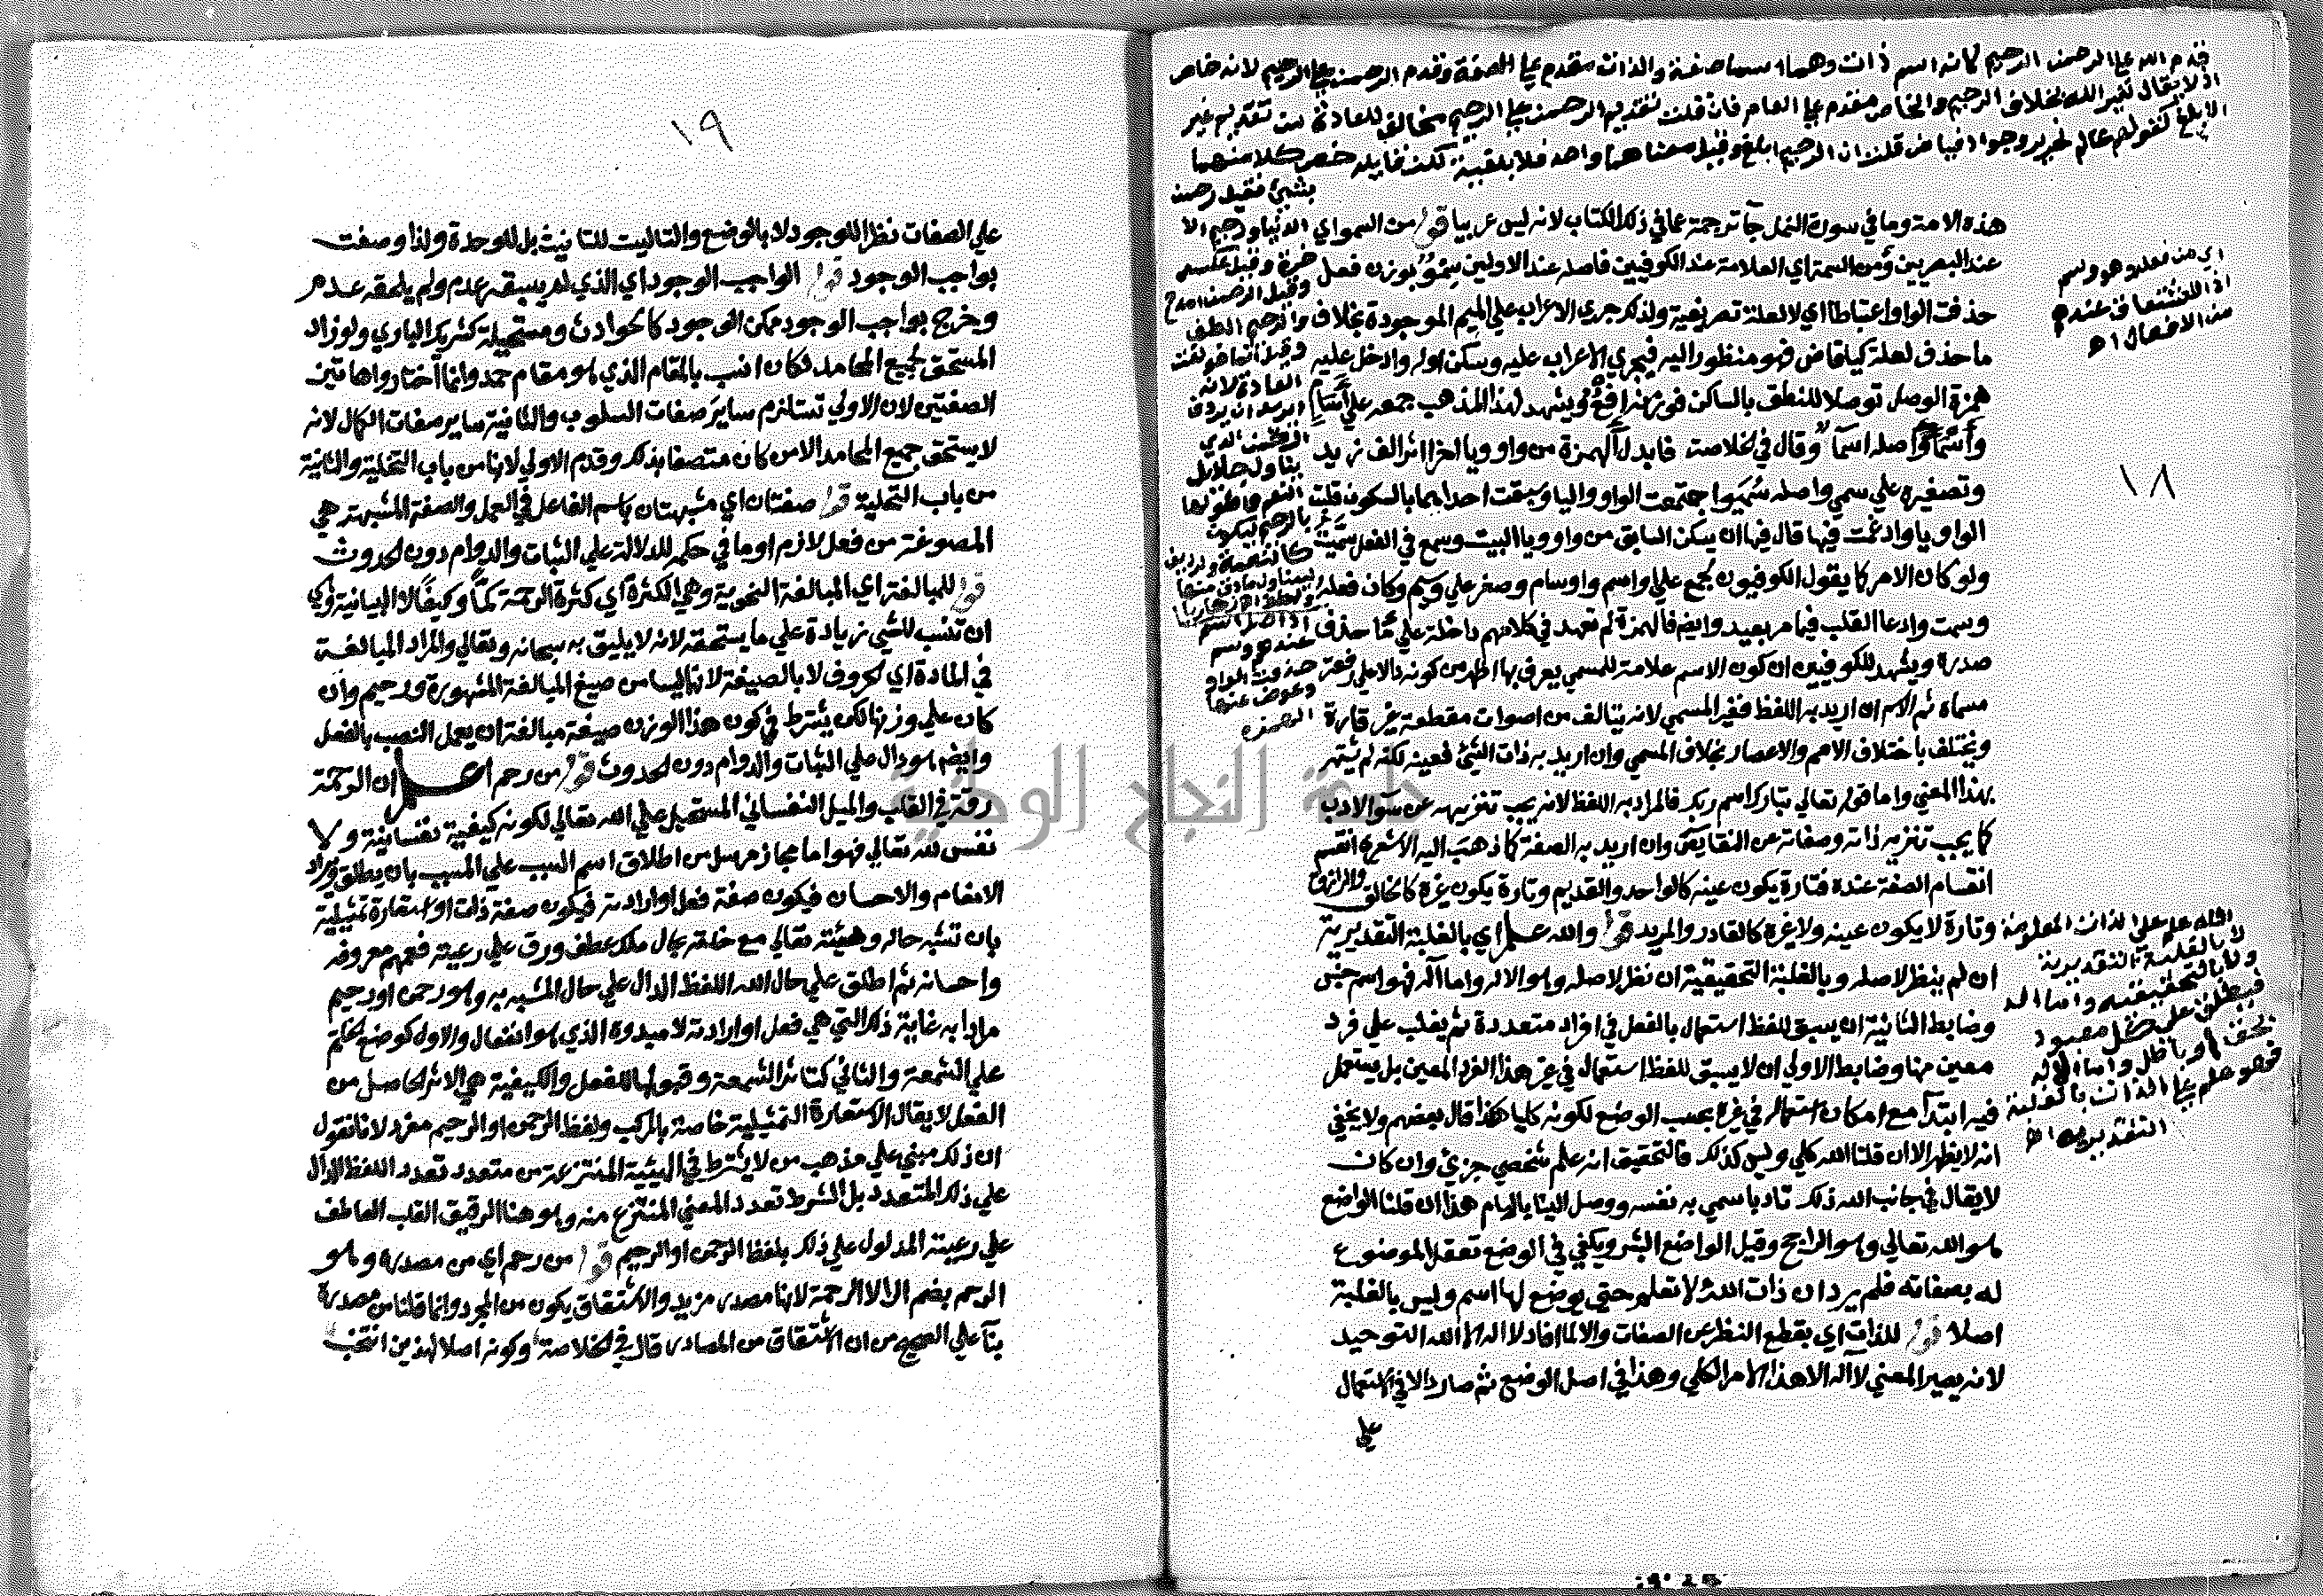 قدم الله علي الرحمن الرحيم لانه اسم ذات وهما اسما صفة والذات متقدم علي الصفة وقدم الرحمن علي الرحيم لانه خاص
اذ لا يقال لغير الله بخلاف الرحيم والخاص مقدم علي العام فان قلت تقديم الرحمن علي الرحيم مخالف للعادة من تقديم غير
الابلغ كقولهم عالم نحرير وجواد فياض قلت ان الرحيم ابلغ وقيل معناهما واحد فلا بلغية لكن خص كلا منهما
بشيئ فقيل رحمن
١٨
هذه الامة وما في سورة النمل جآ ترجمة عما في ذلك الكتاب لانه ليس عربيا قوله من السمو اي
عند البصريين ومن السمة اي العلامة عند الكوفيين فاصله عند الاولين سمو بوزن فعل
حذفت الواو اعتباطا اي لا لعلة تصريفية ولذلك جري الاعراب علي الميم الموجودة بخلاف
ما حذف لعلة كياقاض فهو منظور اليه فيجري الاعراب عليه وسكن اوله وادخل عليه
همزة الوصل توصلا للنطق بالساكن فوزنه افع ويشهد لهذا المذهب جمعه علي اسمآ
واصله اسماو وقال في الخلاصة فابدل الهمزة من واو ويا اخرا اثر الف زيد
وتصغيره علي سمي واصله سميو اجتمعت الواو واليا وسبقت احداهما بالسكون قلبت
الواو يا وادغمت فيها قال فيها ان يسكن السابق من واو ويا البيت وسمع في الفعل سميت
ولو كان الامر كما يقول الكوفيون لجمع علي اواسم واوسام وصغر علي وسيم وكان فعله
وسمت وادعا القلب فيما مر بعيد وايضا فالهمزة لم تعهد في كلامهم داخلة علي ما حذف
صدره ويشهد للكوفيين ان كون الاسم علامة للمسمي يعرف بها اظهر من كونه دالا علي رفعة
مسماه ثم الاسم ان اريد به اللفظ فغير المسمي لانه يتالف من اصوات مقطعة غير قارة
ويختلف باختلاف الامم والاعصار بخلاف المسمي وان اريد به ذات الشيئ فعينه لكنه لم يشتهر
بهذا المعني واما قوله تعالي تبارك اسم ربك فالمراد به اللفظ لانه يجب تنزيهه عن سؤ الادب
كما يجب تنزيه ذاته وصفاته عن النقايص وان اريد به الصفة كما ذهب اليه الاشعري انقسم
انقسام الصفة عنده فتارة يكون عينه كالواحد والقديم وتارة يكون غيره كالخالق والرازق
وتارة لا يكون عينه ولا غيره كالقادر والمريد قوله والله علم اي بالغلبة التقديرية
ان لم ينظر لاصله وبالغلبة التحقيقية ان نظر لاصله وهو الاله واما اله فهو اسم جنس
وضابط الثانية ان يسبق للفظ استعمال بالفعل في افراد متعددة ثم يغلب علي فرد
معين منها وضابط الاولي ان لا يسبق للفظ استعمال في غير هذا الفرد المعين بل يستعمل
فيه ابتدآ مع امكان استعماله في غيره بحسب الوضع لكونه كليا هكذا قال بعضهم ولا يخفي
انه لا يظهر الا ان قلنا الله كلي وليس كذلك فالتحقيق انه علم شخصي جزئي وان كان
لا يقال في جانب الله ذلك تادبا سمي به نفسه ووصل الينا بالهام هذا ان قلنا الواضع
هو الله تعالي وهو الراجح وقيل الواضع البشر ويكفي في الوضع تعقل الموضوع
له بصفاته فلم يرد ان ذات الله لا تعلم حتي يوضع لها اسم وليس بالغلبة
اصلا قوله للذات اي بقطع النظر عن الصفات والا لما افاد لا اله الا الله التوحيد
لانه يصير المعني لا اله الا هذا الامر الكلي وهذا في اصل الوضع ثم صار دالا في الاستعمال
علي
اي من فعله وهو وسم
اذ الاشتقاق عندهم
من الافعال اه
الدنيا ورحيم الا
خرة وقيل عكسه
وقيل الرحمن امدح
والرحيم الطف
اذ اصل اسم
عندهم وسم
حذفت الواو
وعوض عنها
الهمزة
الله علم علي الذات المعلومة
لا بالغلبة التقديرية
ولا بالتحقيقية واما اله
فيطلق علي كل معبود
بحق او باطل واما الاله
فهو علم علي الذات بالغلبة
التقديرية اه
١٩
علي الصفات نظرا للوجود لا بالوضع والتا ليست للتانيث بل للوحدة ولذا وصفت
بواجب الوجود قوله الواجب الوجود اي الذي لم يسبقه عدم ولم يلحقه عدم
وخرج بواجب الوجود ممكن الوجود كالحوادث ومستحيله كشريك الباري ولو زاد
المستحق لجميع المحامد لكان انسب بالمقام الذي هو مقام حمد وانما اختاروا هاتين
الصفتين لان الاولي تستلزم ساير صفات السلوب والثانية ساير صفات الكمال لانه
لا يستحق جميع المحامد الا من كان متصفا بذلك وقدم الاولي لانها من باب التخلية والثانية
من باب التحلية قوله صفتان اي مشبهتان باسم الفاعل في العمل والصفة المشبهة هي
المصوغة من فعل لازم او ما في حكمه للدلالة علي الثبات والدوام دون الحدوث
قوله للمبالغة اي المبالغة النحوية وهي الكثرة اي كثرة الرحمة كما وكيفا لا البيانية وهي
ان تنسب للشي زيادة علي ما يستحقه لانه لا يليق به سبحانه وتعالي والمراد المبالغة
في المادة اي الحروف لا بالصيغة لانها ليسا من صيغ المبالغة المشهورة ورحيم وان
كان علي وزنها لكن يشترط في كون هذا الوزن صيغة مبالغة ان يعمل النصب بالفعل
وايضا هو دال علي الثبات والدوام دون الحدوث قوله من رحم اعلم ان الرحمة
رقة في القلب والميل النفساني المستحيل علي الله تعالي لكونه كيفية نفسانية ولا
نفس لله تعالي فهو اما مجاز مرسل من اطلاق اسم السبب علي المسبب بان يطلق ويراد
الانعام والاحسان فيكون صفة فعل او ارادته فيكون صفة ذات او استعارة تمثيلية
بان تشبه حاله وهيئته تعالي مع خلقه بحال ملك عطف ورق علي رعيته فعمهم معروفه
واحسانه ثم اطلق علي حال الله اللفظ الدال علي حال المشبه به وهو رحمن او رحيم
مرادا به غاية ذلك التي هي فعل او ارادته لا مبدؤه الذي هو انفعال والاول كوضع الختم
علي الشمعة والثاني كتاثر الشمعة وقبولها للفعل والكيفية هي الاثر الحاصل من
الفعل لا يقال الاستعارة التمثيلية خاصة بالمركب ولفظ الرحمن او الرحيم مفرد لانا نقول
ان ذلك مبني علي مذهب من لا يشترط في الهيئة المنتزعة من متعدد تعدد اللفظ الدال
علي ذلك المتعدد بل الشرط تعدد المعني المنتزع منه وهو هنا الرقيق القلب العاطف
علي رعيته المدلول علي ذلك بلفظ الرحمن او الرحيم قوله من رحم اي من مصدره وهو
الرحم بضم الرا لا الرحمة لانها مصدر مزيد والاشتقاق يكون من المجرد وانما قلنا من مصدره
بنآ علي الصحيح من ان الاشتقاق من المصادر قال في الخلاصة وكونه اصلا لهذين انتخب